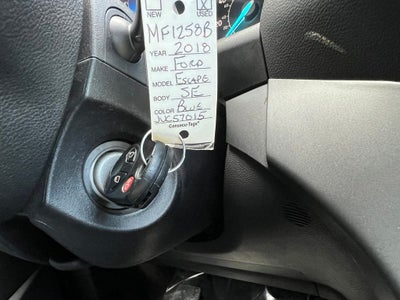 NEW X USED
MF1258B
YEAR 2018
MAKE FORD
MODEL ESCAPE
BODY SE
COLOR BLUE
JUC57015
Connect-Tags
20